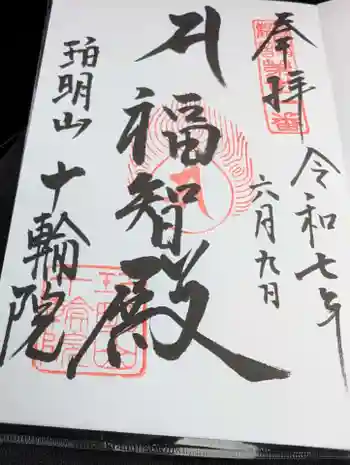 奉拝
令和七年
六月九日
福智殿
珀明山
十輪院